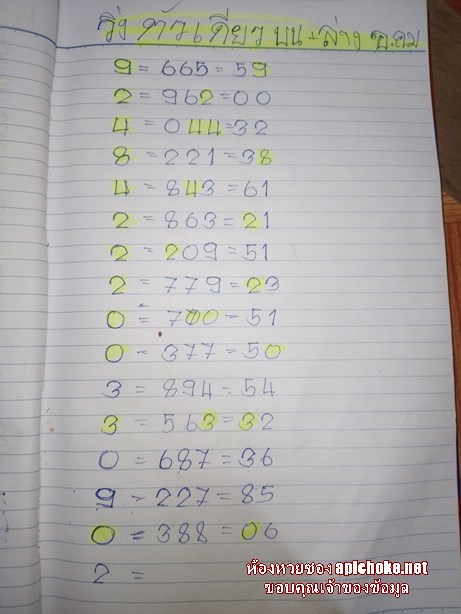 วิ่ง ตัวเดียว บน + ล่าง
9 = 665 = 59
2 = 962 = 00
4 = 044 = 32
8 = 221 = 38
4 = 843 = 61
2 = 863 = 21
2 = 209 = 51
2 = 779 = 23
0 = 700 = 51
0 = 377 = 50
3 = 894 = 54
3 = 563 = 32
0 = 687 = 36
9 = 227 = 85
0 = 388 = 06
2 =
ห้องหวยซอง apichoke.net
ขอบคุณเจ้าของข้อมูล